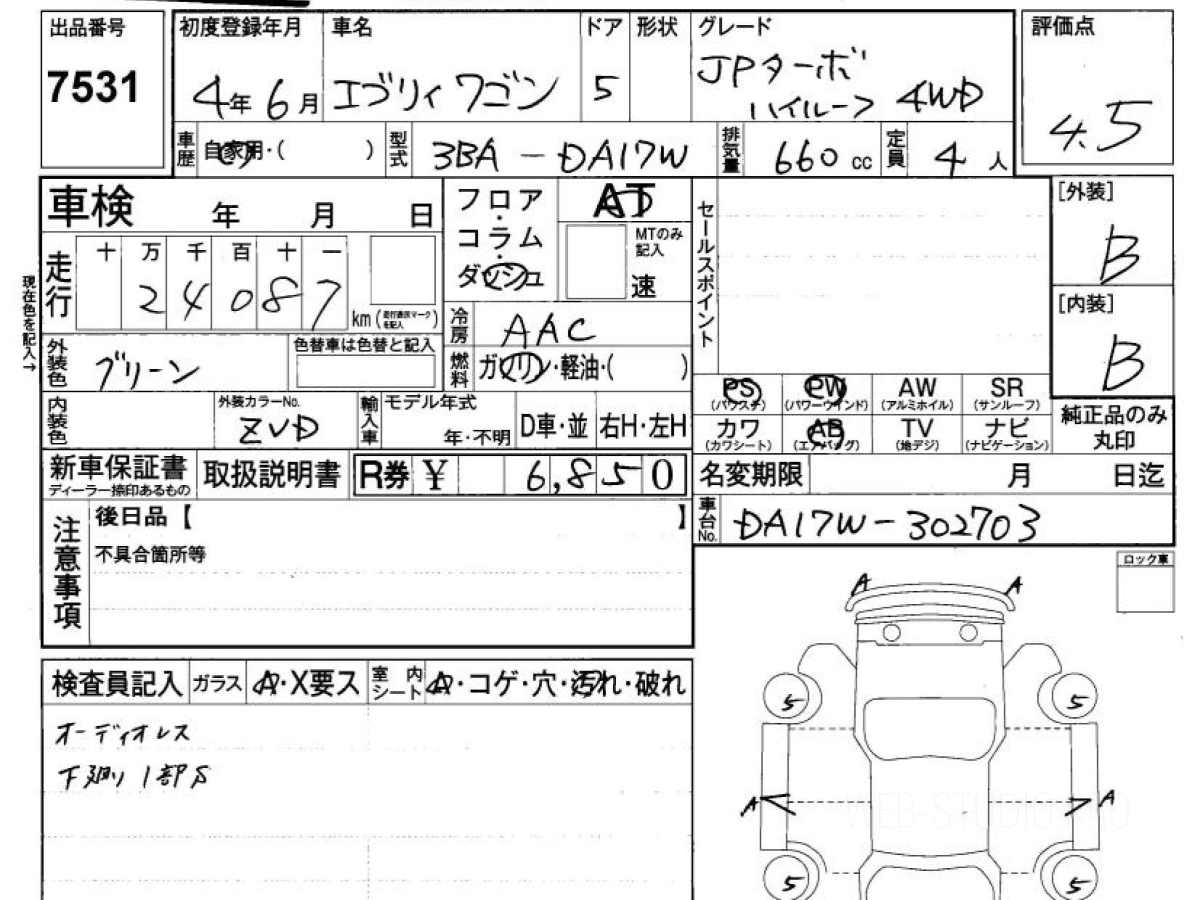 出品番号
7531
初度登録年月
4年6月
車名
エブリィ ワゴン
ドア
5
形状
グレード
JPターボ
ハイルーフ 4WD
評価点
4.5
車歴
自家用・( )
型式
3BA-DA17W
排気量
660 cc
定員
4 人
車検 年 月 日
フロア・コラム・ダッシュ
AT
MTのみ記入
速
セールスポイント
[外装]
B
[内装]
B
現在色を記入→
走行
十 万 千 百 十 一
2 4 0 8 7 km (走行表示マークを記入)
冷房
AAC
外装色
グリーン
色替車は色替と記入
燃料
ガソリン・軽油・( )
PS (パワステ)
PW (パワーウインド)
AW (アルミホイル)
SR (サンルーフ)
カワ (カワシート)
AB (エアバッグ)
TV (地デジ)
ナビ (ナビゲーション)
純正品のみ丸印
内装色
外装カラーNo.
ZVD
輸入車
モデル年式
年・不明
D車・並
右H・左H
新車保証書
ディーラー捺印あるもの
取扱説明書
R券 ¥ 6,850
名変期限 月 日迄
車台No.
DA17W-302703
注意事項
後日品【 】
不具合箇所等
ロック車
A A
検査員記入
ガラス
A・X要ス
室内シート
A・コゲ・穴・汚れ・破れ
オーディオレス
下廻り1部S
5 5
A A
5 5
WEB-STUDIO.PRO